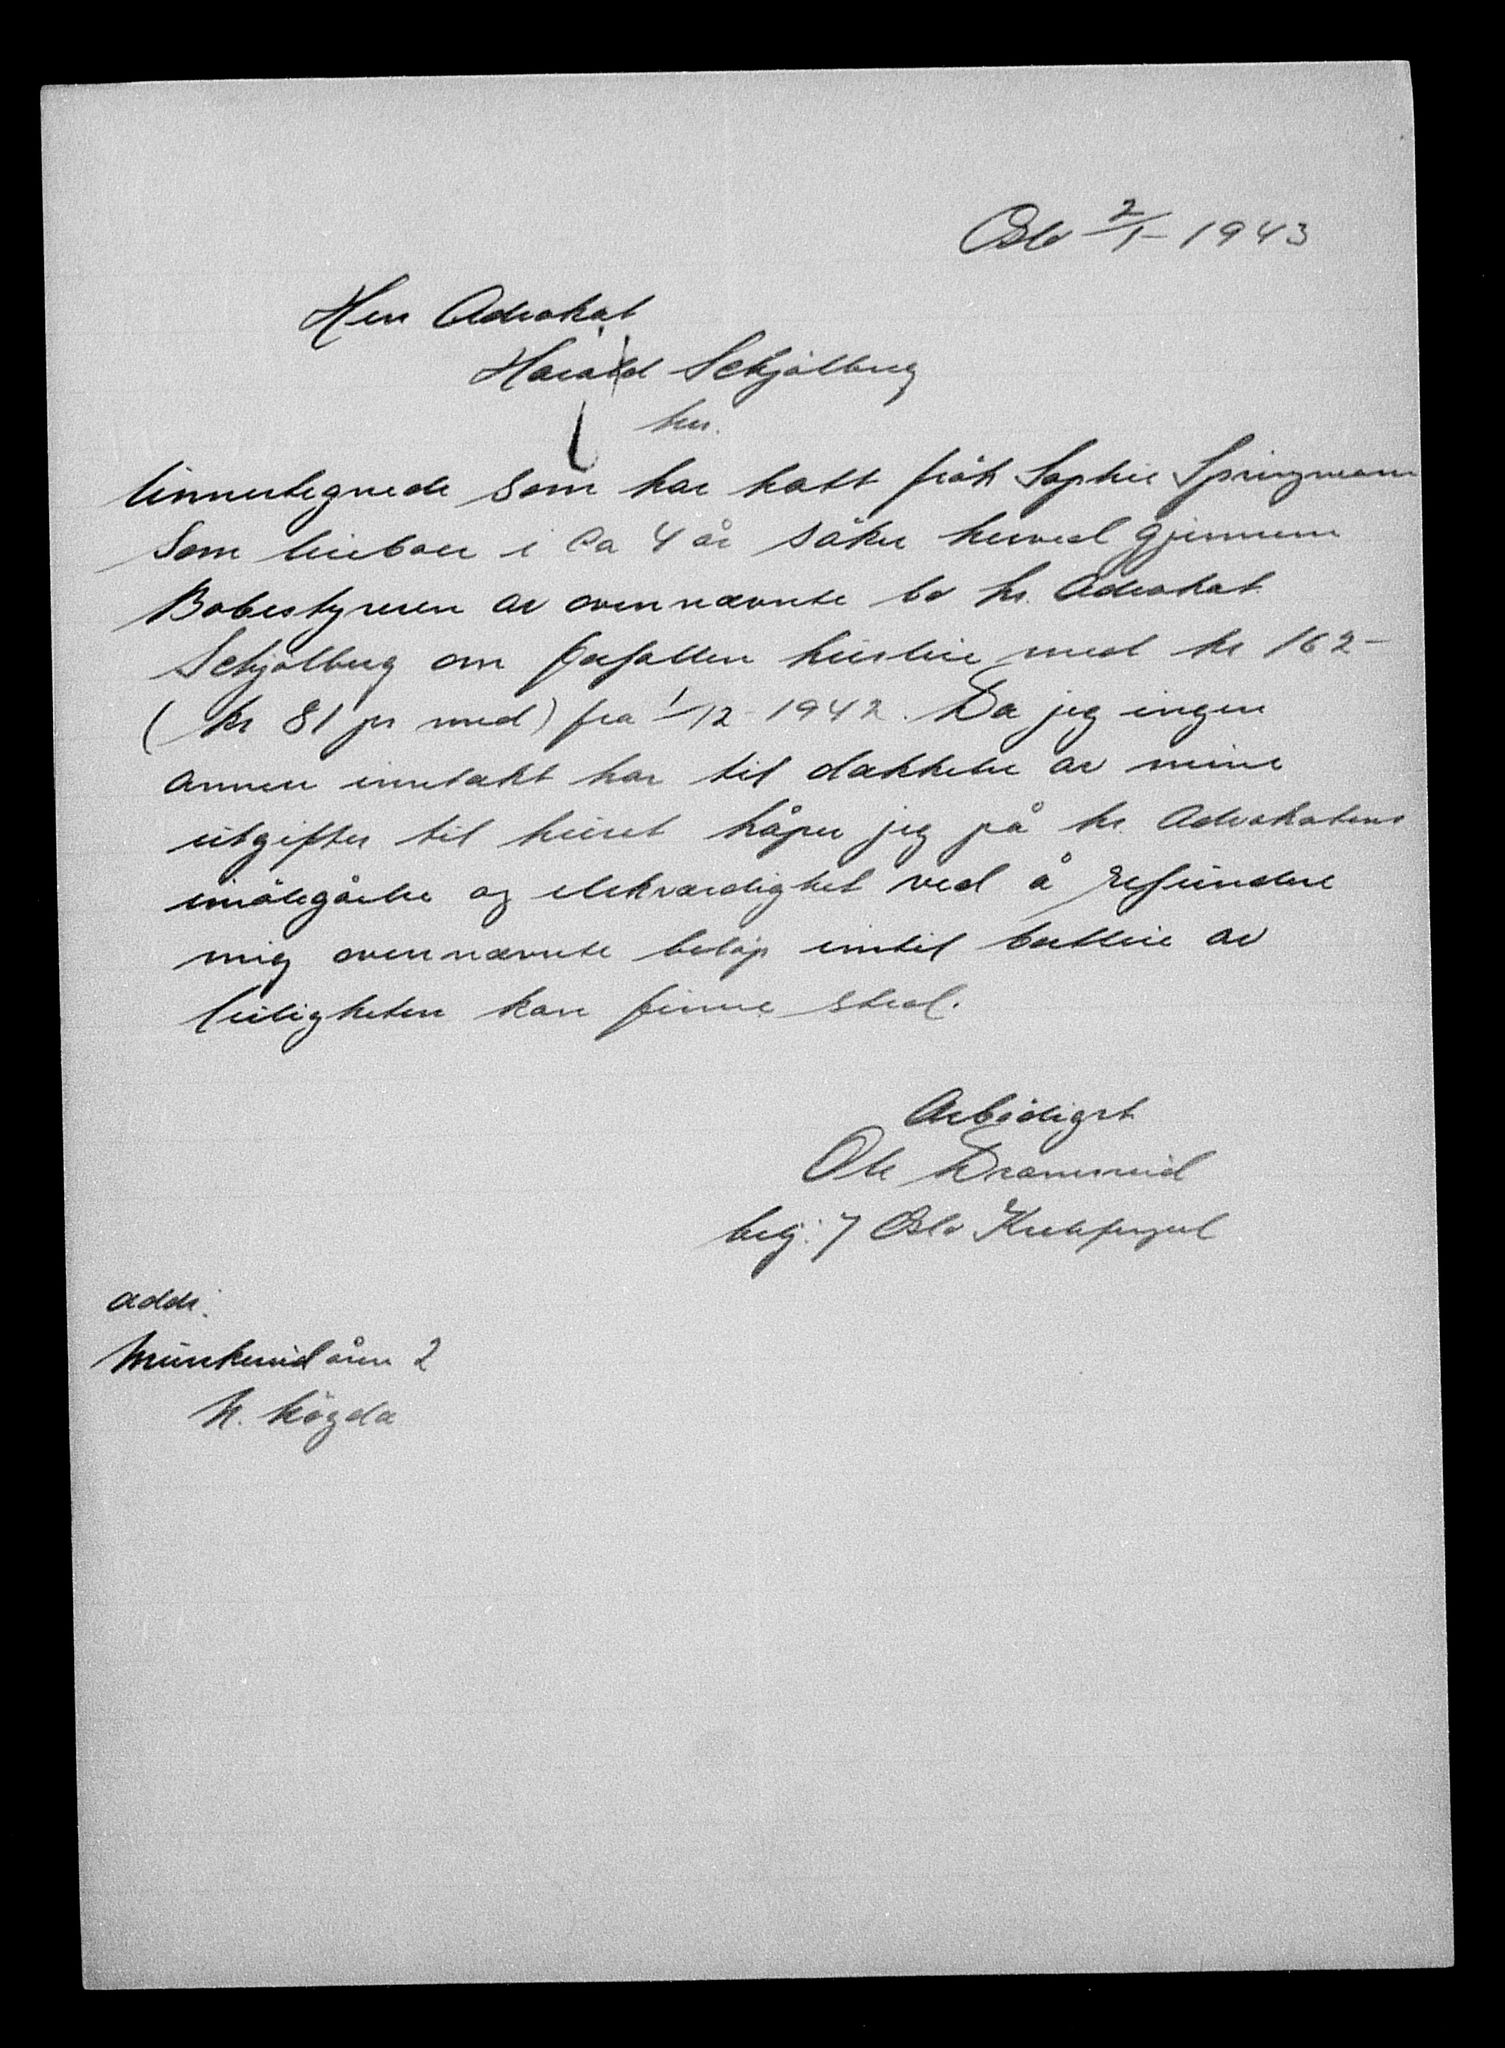 Oslo 2/1 - 1943
Herr Advokat
Harald Schjølberg
her.
Unnertegnede som har hatt frøk Sophie Springmann
Som leieboer i Ca 4 år søker herved gjennem
Bobestyreren av ovennævnte bo hr. Advokat
Schjølberg om forfallen husleie med kr 162 -
( kr 81 pr mnd) fra 1/12 - 1942. Da jeg ingen
annen inntækt har til dækkelse av mine
utgifter til huset håper jeg på hr. Advokatens
imøtegåelse og elskværdighet ved å refundere
mig ovennævnte beløp inntil bortleie av
leiligheten kan finne sted.
Ærbødigst
Ole Drammeid
betj. 7 Oslo Kretsfengsel
addr.
Munkerudåsen 2